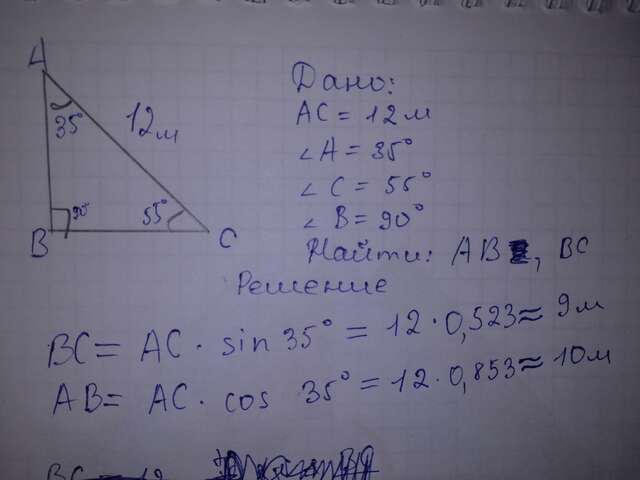 A
35°
12м
90°
55°
B
C
Дано:
AC = 12м
∠A = 35°
∠C = 55°
∠B = 90°
Найти: AB, BC
Решение
BC = AC · sin 35° = 12 · 0,523 ≈ 9м
AB = AC · cos 35° = 12 · 0,853 ≈ 10м
BC = 12